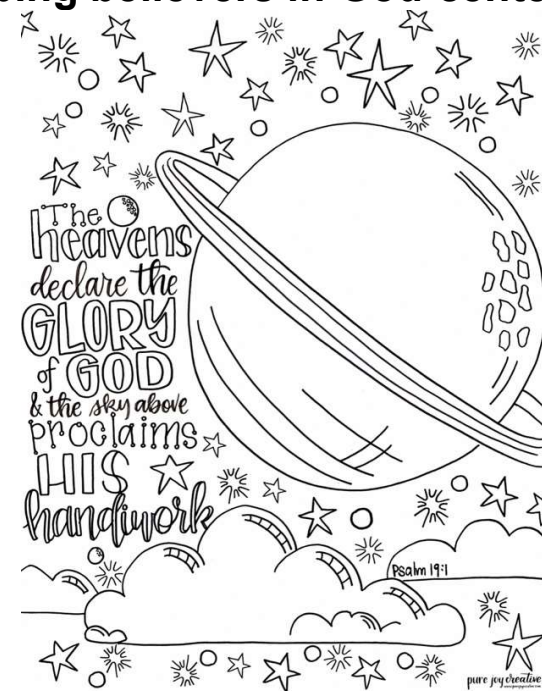 believers in God
The
heavens
declare the
GLORY
of GOD
& the sky above
proclaims
HIS
handiwork
Psalm 19:1
pure joy creative